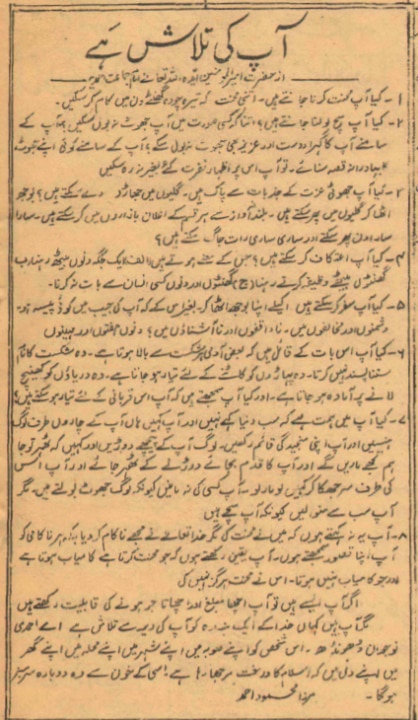 آپ کی تلاش ہے
از حضرت امیر المومنین ایدہ اللہ تعالےٰ امام جماعت احمدیہ
۱۔ کیا آپ محنت کرنا جانتے ہیں۔ اتنی محنت کہ تیرہ چودہ گھنٹے دن میں کام کر سکیں۔
۲۔ کیا آپ سچ بولنا جانتے ہیں؟ اتنا کہ کسی صورت میں آپ جھوٹ نہ بول سکیں۔ آپ کے
سامنے آپ کا گہرا دوست اور عزیز بھی جھوٹ نہ بول سکے؟ آپ کے سامنے کوئی اپنے جھوٹ کا
بہادرانہ قصہ سنائے۔ تو آپ اس پر اظہار نفرت کئے بغیر نہ رہ سکیں
۳۔ کیا آپ جھوٹی عزت کے جذبات سے پاک ہیں۔ گلیوں میں جھاڑو دے سکتے ہیں؟ بوجھ
اٹھا کر گلیوں میں پھر سکتے ہیں۔ بلند آواز سے ہر قسم کے اعلان بازاروں میں کر سکتے ہیں۔ سارا
سارا دن پھر سکتے اور ساری ساری رات جاگ سکتے ہیں؟
۴۔ کیا آپ اعتکاف کر سکتے ہیں؟ جس کے معنے ہوتے ہیں (الف) ایک جگہ دنوں بیٹھ رہنا (ب)
گھنٹوں بیٹھے وظیفہ کرتے رہنا (ج) گھنٹوں اور دنوں کسی انسان سے بات نہ کرنا۔
۵۔ کیا آپ سفر کر سکتے ہیں۔ اکیلے اپنا بوجھ اٹھا کر۔ بغیر اس کے کہ آپ کی جیب میں کوئی پیسہ ہو۔
دشمنوں اور مخالفوں میں۔ ناواقفوں اور ناآشناؤں میں؟ دنوں ہفتوں اور مہینوں
۶۔ کیا آپ اس بات کے قائل ہیں کہ بعض آدمی ہر شکست سے بالا ہوتا ہے۔ وہ شکست کا نام
سننا پسند نہیں کرتا۔ وہ پہاڑوں کو کاٹنے کے لئے تیار ہو جاتا ہے۔ وہ دریاؤں کو کھینچ
لانے پر آمادہ ہو جاتا ہے۔ اور کیا آپ سمجھتے ہیں کہ آپ اس قربانی کے لئے تیار ہو سکتے ہیں؟
۷۔ کیا آپ میں ہمت ہے کہ سب دنیا کہے نہیں اور آپ کہیں ہاں آپ کے چاروں طرف لوگ
ہنسیں اور آپ اپنی سنجیدگی قائم رکھیں۔ لوگ آپ کے پیچھے دوڑیں اور کہیں کہ ٹھہر تو جا
ہم تجھے ماریں گے اور آپ کا قدم بجائے دوڑنے کے ٹھہر جائے اور آپ اس
کی طرف سر جھکا کر کہیں لو مار لو۔ آپ کسی کی نہ مانیں کیونکہ لوگ جھوٹ بولتے ہیں۔ مگر
آپ سب سے منوا لیں کیونکہ آپ سچے ہیں
۸۔ آپ یہ نہ کہتے ہوں کہ میں نے محنت کی مگر خدا تعالےٰ نے مجھے ناکام کر دیا بلکہ ہر ناکامی کو
آپ اپنا قصور سمجھتے ہوں۔ آپ یقین رکھتے ہوں کہ جو محنت کرتا ہے کامیاب ہوتا ہے
اور جو کامیاب نہیں ہوتا۔ اس نے محنت ہرگز نہیں کی
اگر آپ ایسے ہیں تو آپ اچھا مبلغ اور اچھا تاجر ہونے کی قابلیت رکھتے ہیں
مگر آپ ہیں کہاں خدا کے ایک بندہ کو آپ کی دیر سے تلاش ہے۔ اے احمدی
نوجوان ڈھونڈھ۔ اس شخص کو اپنے صوبہ میں اپنے شہر میں اپنے محلہ میں اپنے گھر
میں اپنے دل میں کہ اسلام کا درخت مرجھا رہا ہے اسی کے خون سے وہ دوبارہ سرسبز
ہوگا۔ مرزا محمود احمد